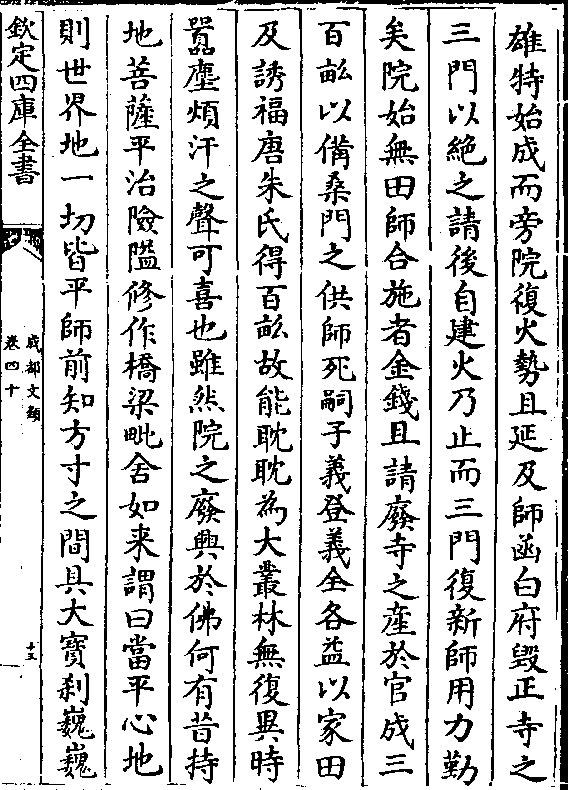 雄特始成而旁院復火勢且延及師函白府毀正寺之
三門以絶之請後自建火乃止而三門復新師用力勤
矣院始無田師合施者金錢且請廢寺之産於官成三
百畝以備桑門之供師死嗣子義登義全各益以家田
及誘福唐朱氏得百畝故能耽耽為大叢林無復異時
囂塵煩汗之聲可喜也雖然院之廢興於佛何有昔持
地菩薩平治險隘修作橋梁毗舍如来謂曰當平心地
則世界地一切皆平師前知方寸之間具大寳刹巍巍
欽定四庫全書
成都文類
卷四十
十五